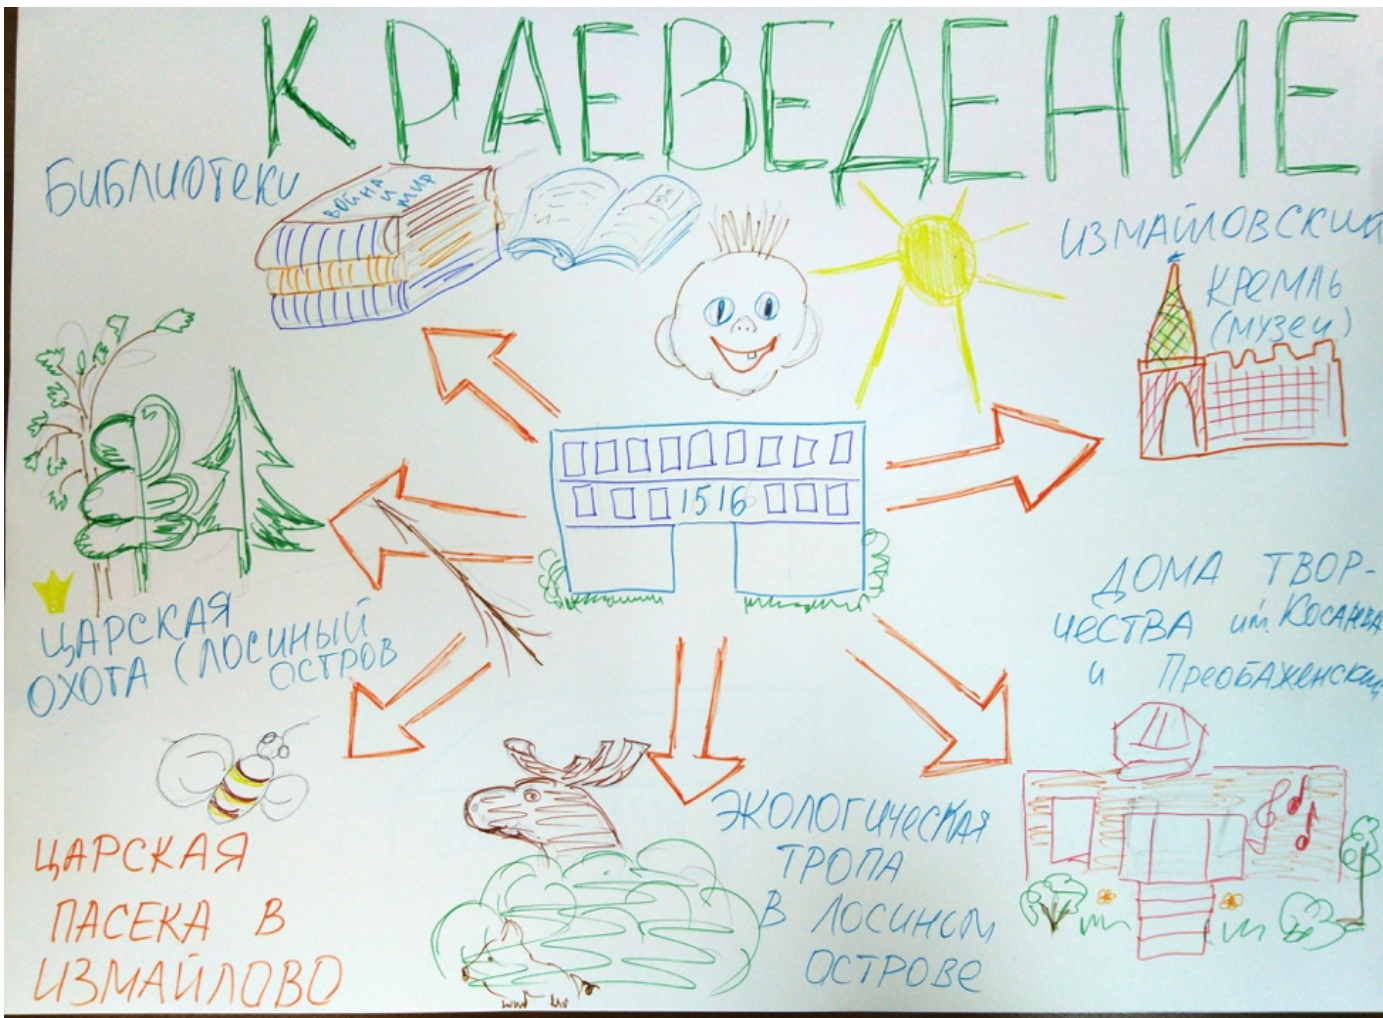 КРАЕВЕДЕНИЕ
БИБЛИОТЕКИ
ВОЙНА
И
МИР
ИЗМАЙЛОВСКИЙ
КРЕМЛЬ
(МУЗЕИ)
1516
ЦАРСКАЯ
ОХОТА (ЛОСИНЫЙ
ОСТРОВ
ДОМА ТВОР-
ЧЕСТВА им. КОСАРЕВА
и ПРЕОБАЖЕНСКИЙ
ЦАРСКАЯ
ПАСЕКА В
ИЗМАЙЛОВО
ЭКОЛОГИЧЕСКАЯ
ТРОПА
В ЛОСИНОМ
ОСТРОВЕ